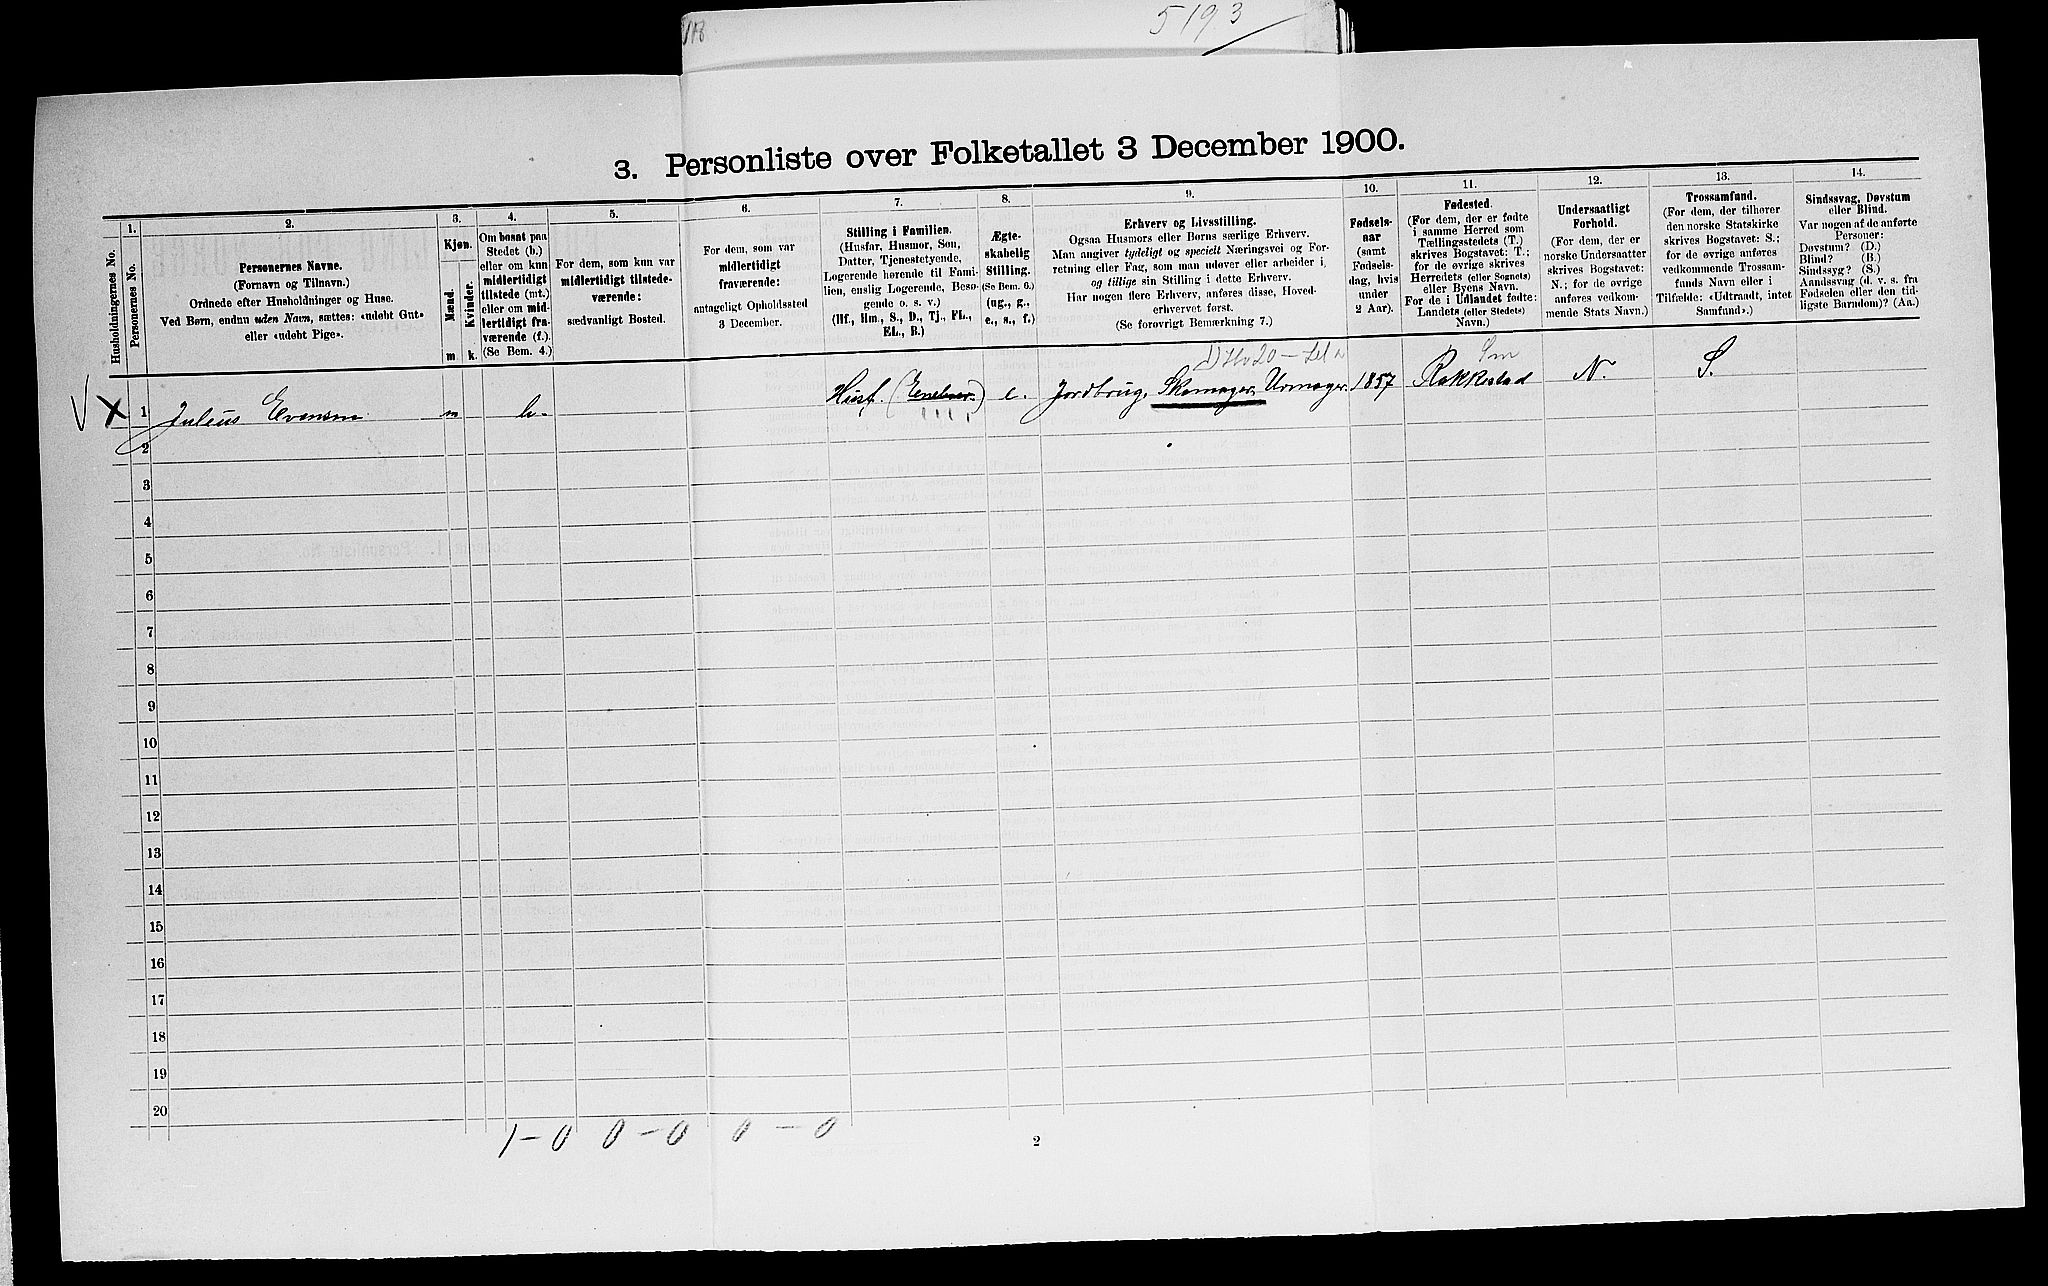 5193
3. Personliste over Folketallet 3 December 1900.
Husholdningernes No.
1.
Personernes No.
2.
Personernes Navne.
(Fornavn og Tilnavn.)
Ordnede efter Husholdninger og Huse.
Ved Børn, endnu uden Navn, sættes: «udøbt Gut»
eller «udøbt Pige».
3.
Kjøn.
Mænd.
Kvinder.
m.
k.
4.
Om bosat paa
Stedet (b.)
eller om kun
midlertidigt
tilstede (mt.)
eller om mid-
lertidigt fra-
værende (f.).
(Se Bem. 4.)
5.
For dem, som kun var
midlertidigt tilstede-
værende:
sædvanligt Bosted.
6.
For dem, som var
midlertidigt
fraværende:
antageligt Opholdssted
3 December.
7.
Stilling i Familien.
(Husfar, Husmor, Søn,
Datter, Tjenestetyende,
Logerende hørende til Fami-
lien, enslig Logerende, Besø-
gende o. s. v.)
(Hf., Hm., S., D., Tj., FL.,
EL., B.)
8.
Ægte-
skabelig
Stilling.
(Se Bem. 6.)
(ug., g.,
e., s., f.)
9.
Erhverv og Livsstilling.
Ogsaa Husmors eller Børns særlige Erhverv.
Man angiver tydeligt og specielt Næringsvei og For-
retning eller Fag, som man udøver eller arbeider i,
og tillige sin Stilling i dette Erhverv.
Har nogen flere Erhverv, anføres disse, Hoved-
erhvervet først.
(Se forøvrigt Bemærkning 7.)
10.
Fødsels-
aar
(samt
Fødsels-
dag, hvis
under
2 Aar).
11.
Fødested.
(For dem, der er fødte
i samme Herred som
Tællingsstedets (T.)
skrives Bogstavet: T.;
for de øvrige skrives
Herredets (eller Sognets)
eller Byens Navn.
For de i Udlandet fødte:
Landets (eller Stedets)
Navn.)
12.
Undersaatligt
Forhold.
(For dem, der er
norske Undersaatter
skrives Bogstavet:
N.; for de øvrige
anføres vedkom-
mende Stats Navn.)
13.
Trossamfund.
(For dem, der tilhører
den norske Statskirke
skrives Bogstavet: S.;
for de øvrige anføres
vedkommende Trossam-
funds Navn eller i
Tilfælde: «Udtraadt, intet
Samfund».)
14.
Sindssvag, Døvstum
eller Blind.
Var nogen af de anførte
Personer:
Døvstum? (D.)
Blind? (B.)
Sindssyg? (S.)
Aandssvag (d. v. s. fra
Fødselen eller den tid-
ligste Barndom)? (Aa.)
Sm
1 Julius Evensen m b. Husf. (Eneboer) e. Jordbrug, Skomager, Urmager. 1857 Rakkestad N. S.
2
3
4
5
6
7
8
9
10
11
12
13
14
15
16
17
18
19
20
1-0 0-0 0-0
2